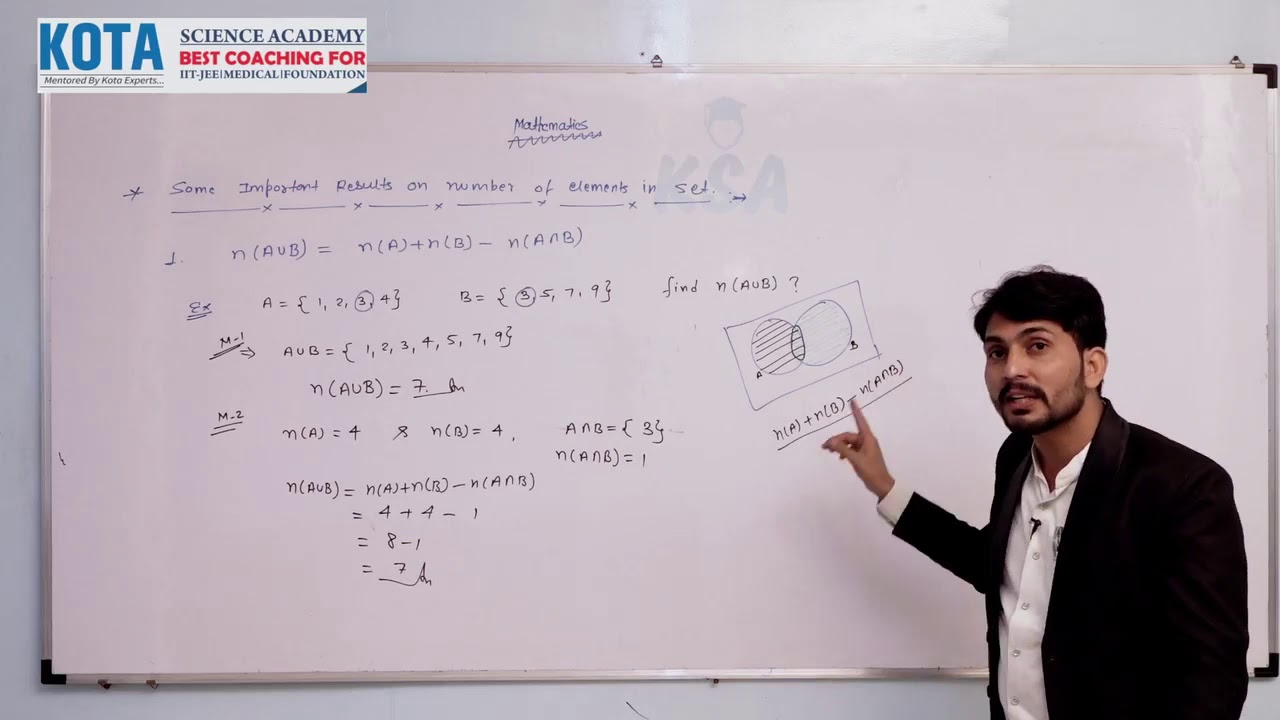 KOTA
Mentored By Kota Experts...
SCIENCE ACADEMY
BEST COACHING FOR
IIT-JEE|MEDICAL|FOUNDATION
Mathematics
KSA
* Some Important Results on number of elements in set. →
1. n(A∪B) = n(A)+n(B) - n(A∩B)
Ex A = { 1, 2, 3, 4} B = { 3, 5, 7, 9} find n(A∪B) ?
M-1 ⇒ A∪B = { 1, 2, 3, 4, 5, 7, 9}
n(A∪B) = 7.
M-2
n(A) = 4 & n(B) = 4, A∩B = { 3}
n(A∩B) = 1
n(A∪B) = n(A)+n(B) - n(A∩B)
= 4 + 4 - 1
= 8 - 1
= 7
A
B
n(A) + n(B) - n(A∩B)